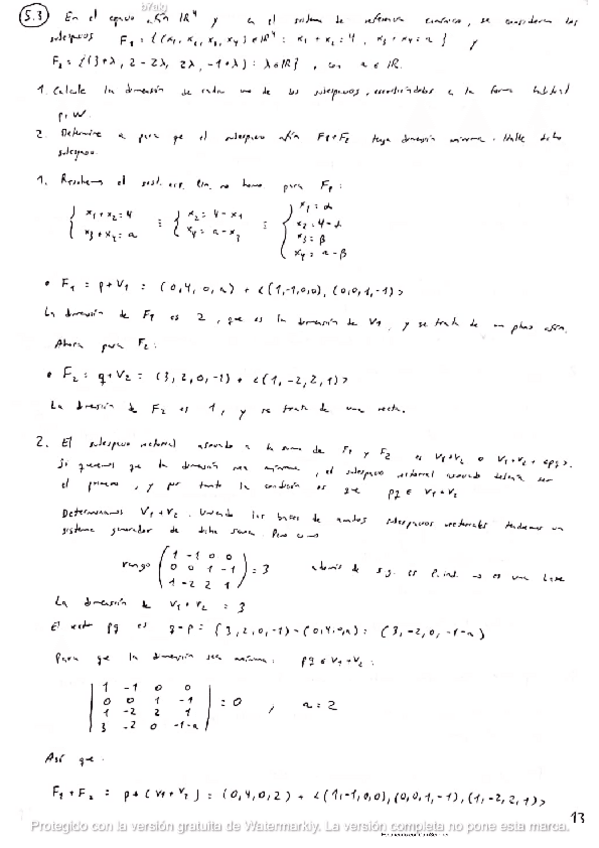 b7akg
5.3) En el espacio afín IR⁴ y en el sistema de referencia canónico, se consideran los
subespacios F₁ = {(x₁, x₂, x₃, x₄) ∈ IR⁴ : x₁ + x₂ = 4, x₃ + x₄ = a} y
F₂ = {(3+λ, 2-2λ, 2λ, -1+λ) : λ ∈ IR}, con a ∈ IR.
1. Calcule la dimensión de cada uno de los subespacios, escribiéndolos en la forma habitual
p + W.
2. Determine a para que el subespacio afín F₁+F₂ tenga dimensión mínima. Halle dicho
subespacio.
1. Resolvemos el sist. ecs. lin. no homo para F₁:
{ x₁+x₂=4 x₃+x₄=a : { x₂=4-x₁ x₄=a-x₃ : { x₁=α x₂=4-α x₃=β x₄=a-β
• F₁ = p+V₁ = (0,4,0,a) + <(1,-1,0,0), (0,0,1,-1)>
La dimensión de F₁ es 2, que es la dimensión de V₁, y se trata de un plano afín.
Ahora para F₂:
• F₂ = q+V₂ = (3,2,0,-1) + <(1,-2,2,1)>
La dimensión de F₂ es 1, y se trata de una recta.
2. El subespacio vectorial asociado a la suma de F₁ y F₂ es V₁+V₂ o V₁+V₂+<pq>.
Si queremos que la dimensión sea mínima, el subespacio vectorial asociado debería ser
el primero, y por tanto la condición es que pq ∈ V₁+V₂
Determinamos V₁+V₂. Uniendo las bases de ambos subespacios vectoriales tendremos un
sistema generador de dicha suma. Pero como
rango (1 -1 0 0
0 0 1 -1
1 -2 2 1) = 3 además de s.g. es l.ind. → es una base
La dimensión de V₁+V₂ = 3
El vect pq es q-p = (3,2,0,-1)-(0,4,0,a) = (3,-2,0,-1-a)
Para que la dimensión sea mínima: pq ∈ V₁+V₂:
| 1 -1 0 0
0 0 1 -1
1 -2 2 1
3 -2 0 -1-a | = 0 , a = 2
Así que:
F₁+F₂ = p+(V₁+V₂) = (0,4,0,2) + <(1,-1,0,0),(0,0,1,-1),(1,-2,2,1)>
13
Protegido con la versión gratuita de Watermarkly. La versión completa no pone esta marca.